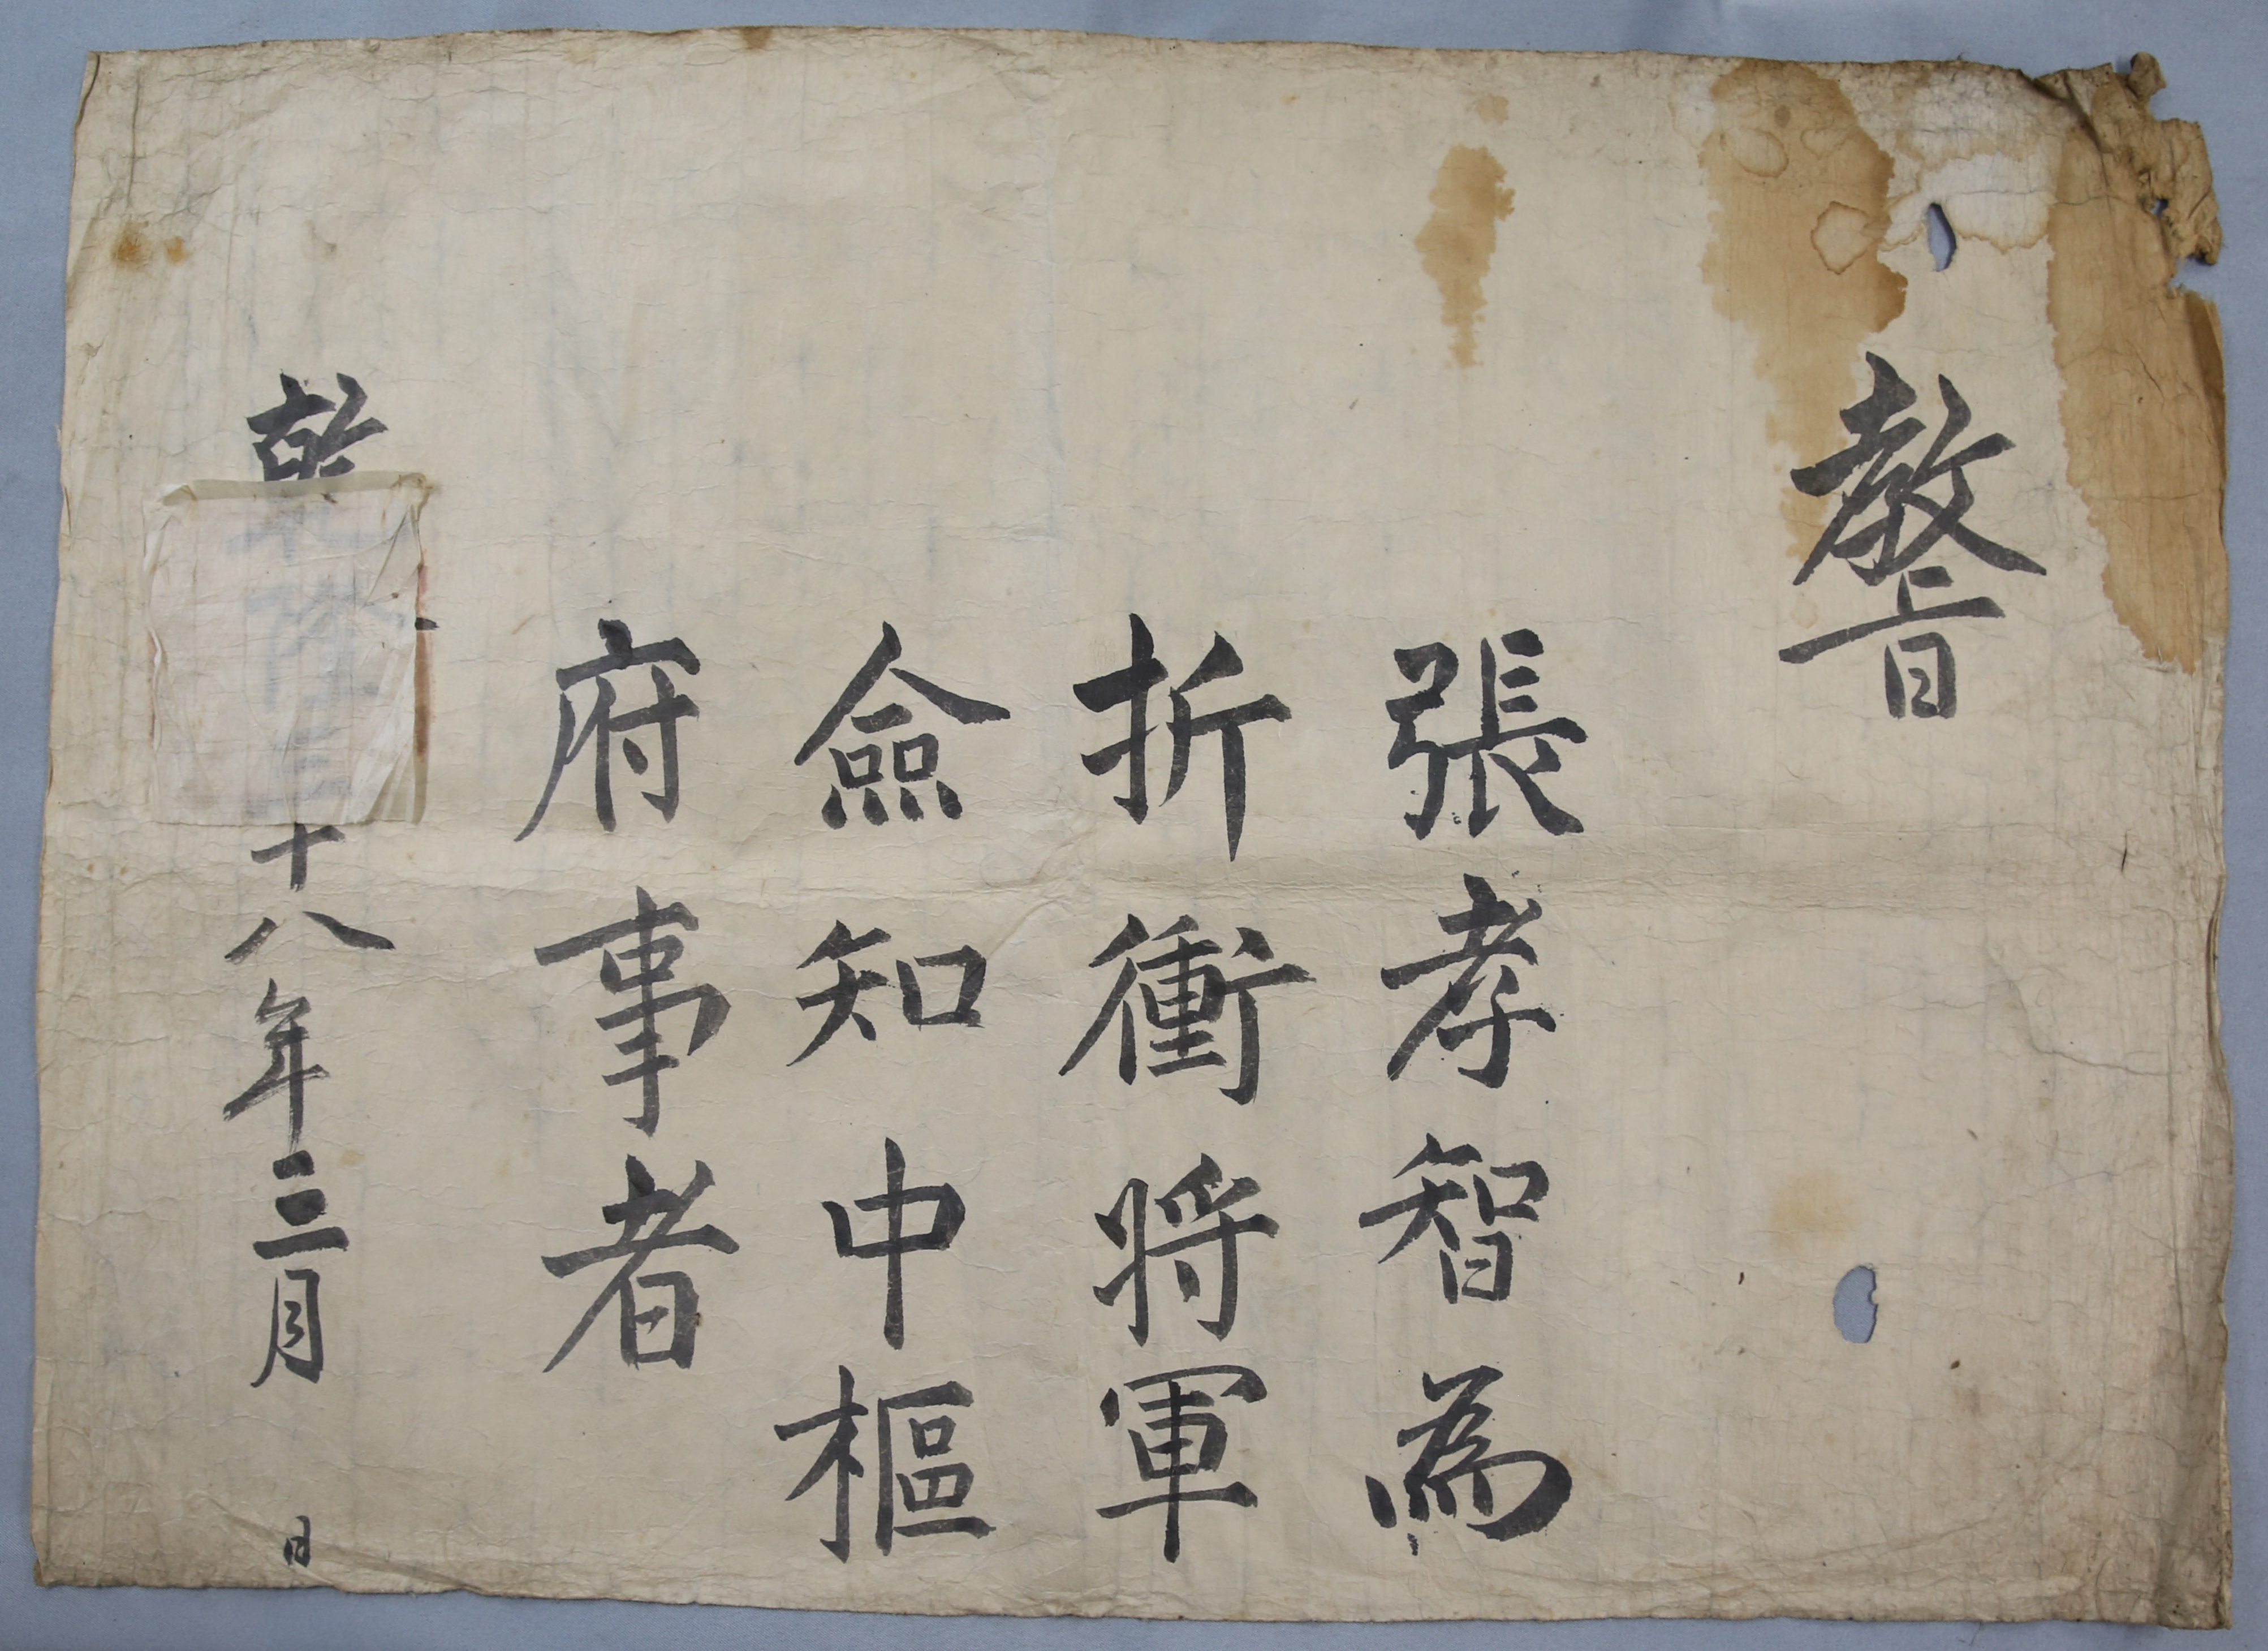 教旨
張孝智為
折衝将軍
僉知中樞
府事者
乾隆三十八年三月 日